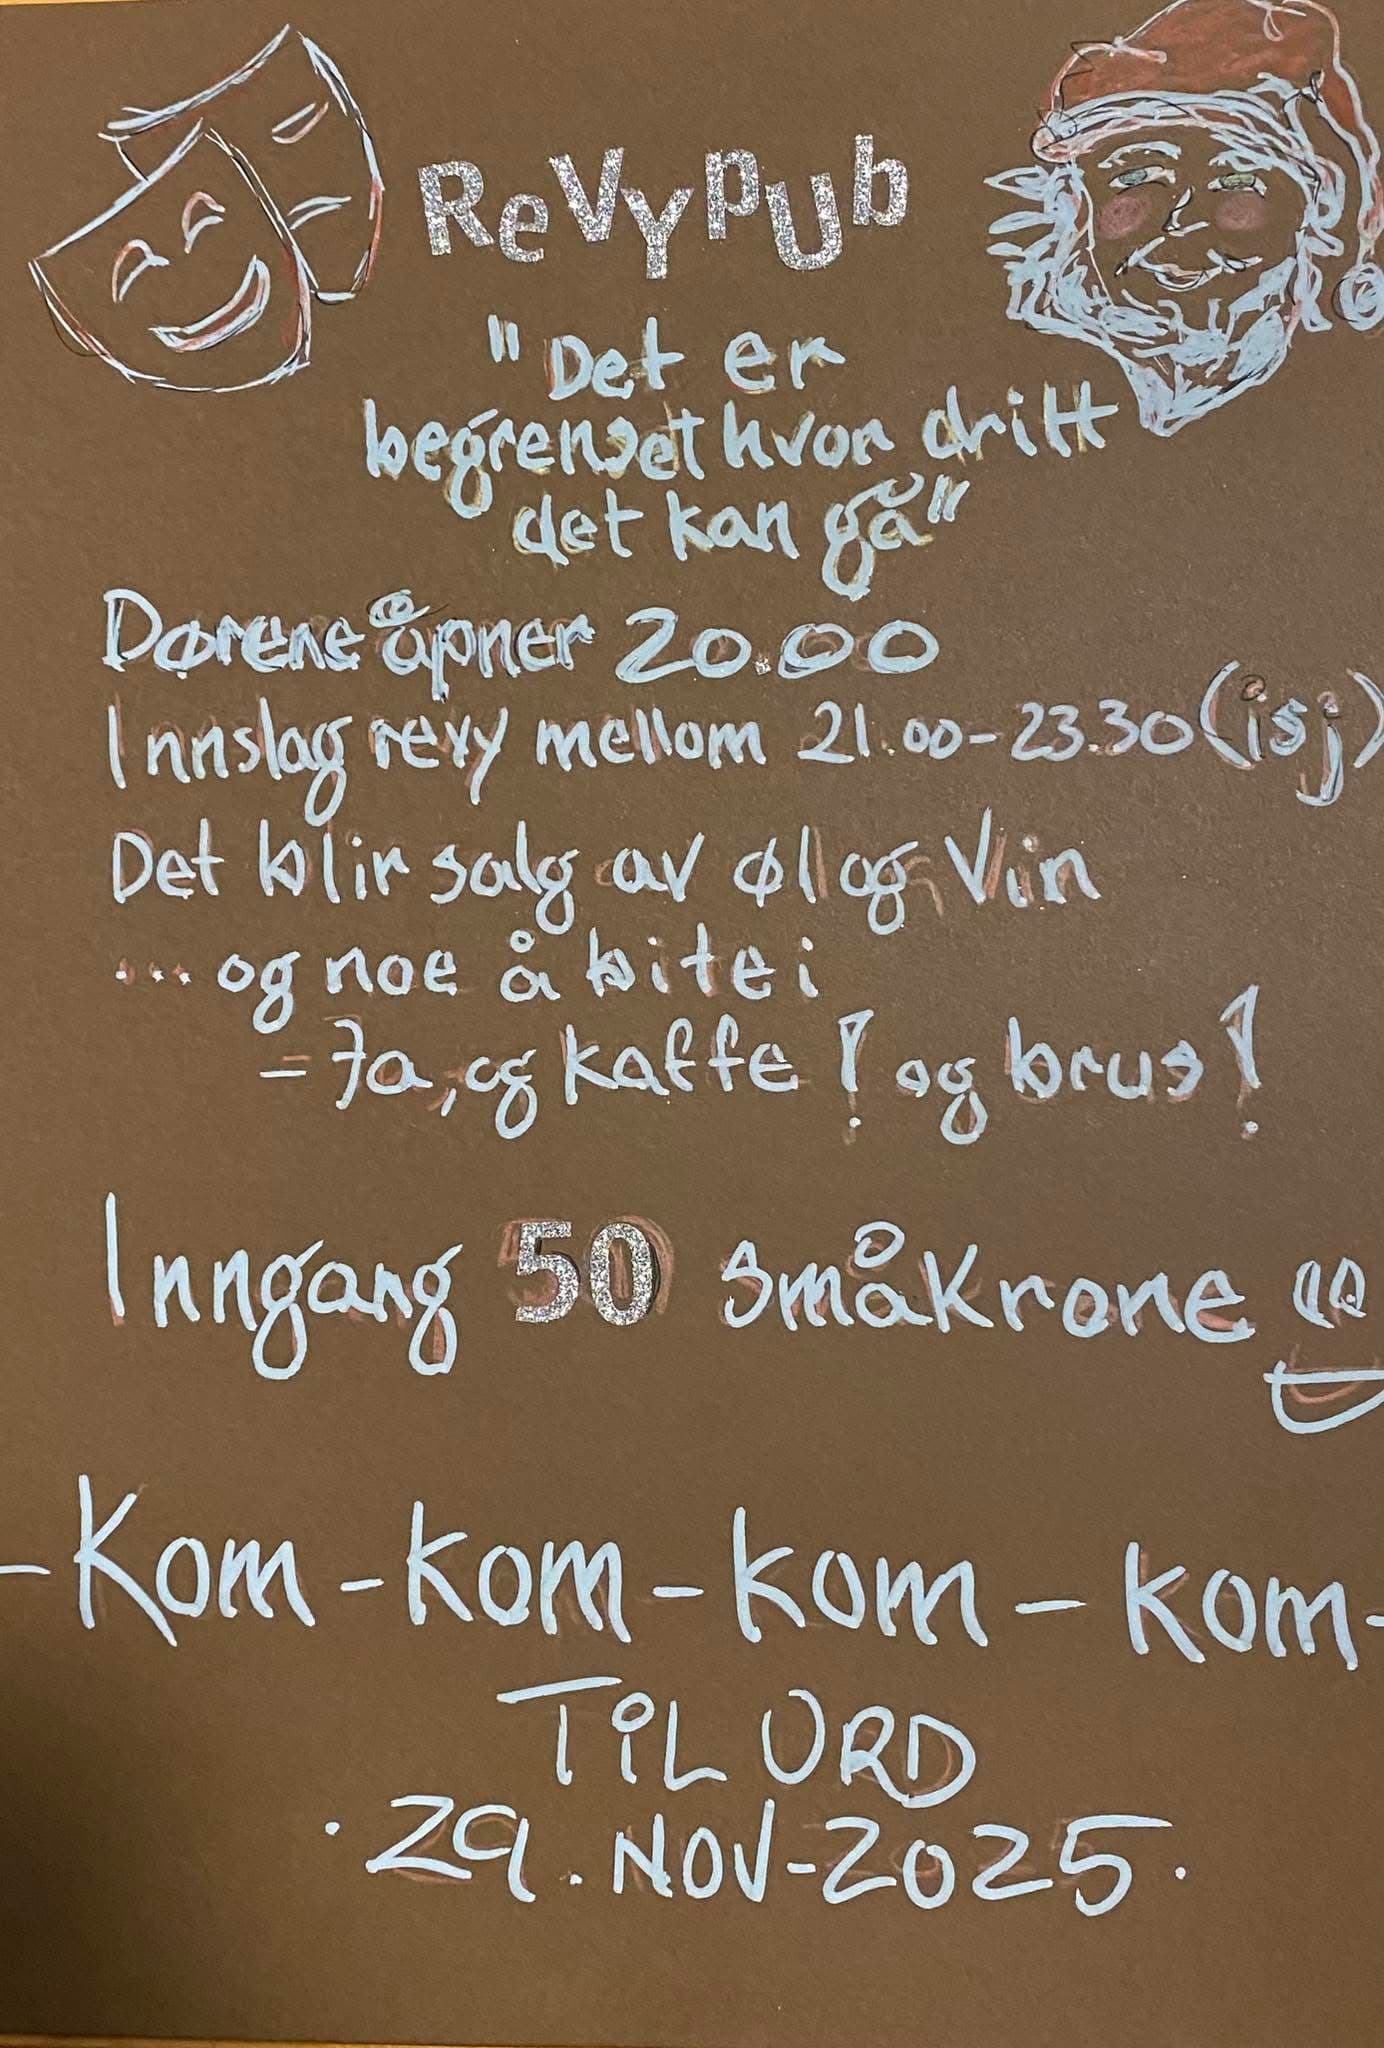 ReVYPUb
"Det er
begrenset hvor dritt
det kan gå"
Dørene åpner 20.00
Innslag revy mellom 21.00-23.30 (isj)
Det blir salg av øl og Vin
... og noe å bite i
= Ja, og kaffe! og brus!
Inngang 50 småkrone
- Kom - kom - kom - kom -
TiL URD
. 29. NOV-2025.